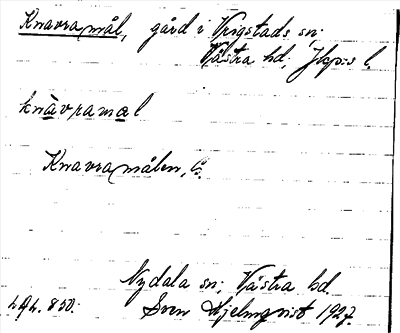 Knavramål, gård i Vrigstads sn;
Västra hd; Jkp:s l.
knàvramal
Knavramålen, ib.
Nydala sn; Västra hd.
Sven Hjelmqvist 1927.